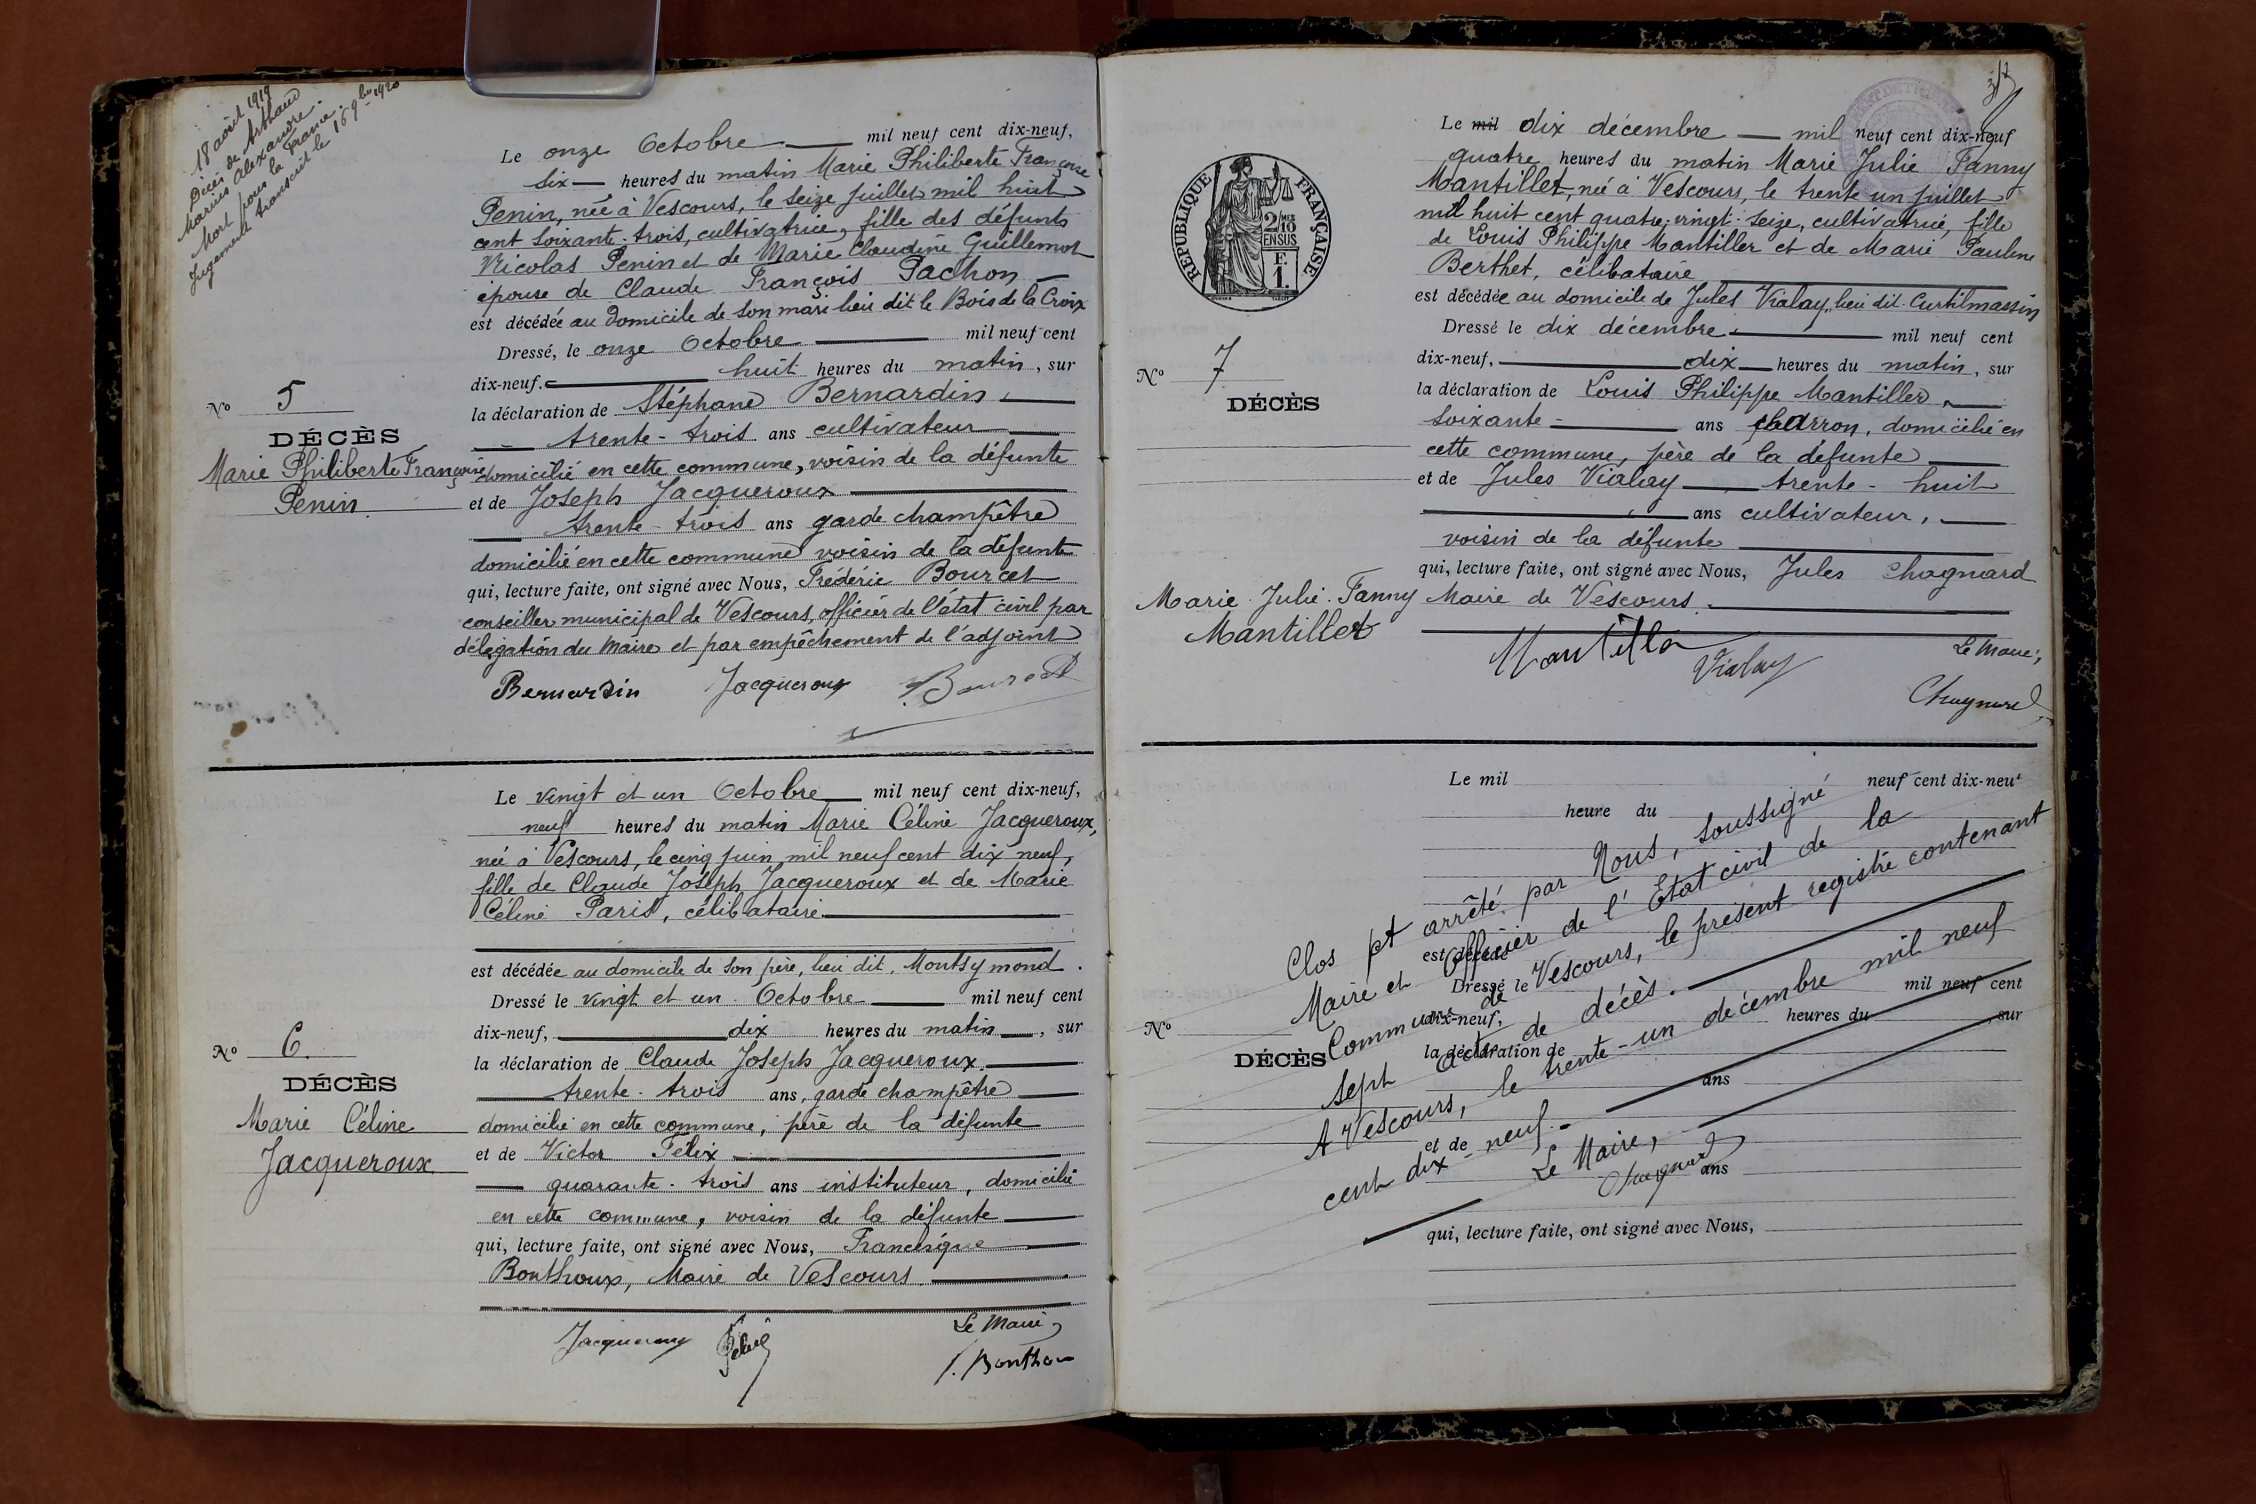 18 août 1919
Décès de Arthaud
Marius Alexandre.
Mort pour la France.
Jugement transcrit le 16 9bre 1920
Le onze Octobre mil neuf cent dix-neuf,
six heures du matin Marie Philiberte Françoise
Penin, née à Vescours, le seize juillet mil huit
cent soixante-trois, cultivatrice, fille des défunts
Nicolas Penin et de Marie Claudine Guillemot
épouse de Claude François Pachon
est décédée au domicile de son mari lieu dit le Bois de la Croix
Dressé, le onze Octobre mil neuf cent
dix-neuf. huit heures du matin, sur
la déclaration de Stéphane Bernardin,
trente-trois ans cultivateur
domicilié en cette commune, voisin de la défunte
et de Joseph Jacqueroux
trente-trois ans garde champêtre
domicilié en cette commune voisin de la défunte
qui, lecture faite, ont signé avec Nous, Frédéric Bourcet
conseiller municipal de Vescours, officier de l'état civil par
délégation du Maire et par empêchement de l'adjoint
Bernardin Jacqueroux Bourcet
No 5
DÉCÈS
Marie Philiberte Françoise
Penin
Le vingt et un Octobre mil neuf cent dix-neuf,
neuf heures du matin Marie Céline Jacqueroux,
née à Vescours, le cinq juin mil neuf cent dix neuf,
fille de Claude Joseph Jacqueroux et de Marie
Céline Paris, célibataire
est décédée au domicile de son père, lieu dit, Montsymond.
Dressé le vingt et un Octobre mil neuf cent
dix-neuf, dix heures du matin, sur
la déclaration de Claude Joseph Jacqueroux
trente-trois ans, garde champêtre
domicilié en cette commune, père de la défunte
et de Victor Félix
quarante-trois ans instituteur, domicilié
en cette commune, voisin de la défunte
qui, lecture faite, ont signé avec Nous, Francisque
Bonthoux, Maire de Vescours.
Jacqueroux Félix
Le Maire,
F. Bonthou
No 6.
DÉCÈS
Marie Céline
Jacqueroux
RÉPUBLIQUE FRANÇAISE
2/10 EN SUS
F. 1.
Le mil dix décembre mil neuf cent dix-neuf
quatre heures du matin Marie Julie Fanny
Mantillet, née à Vescours, le trente un juillet
mil huit cent quatre-vingt-seize, cultivatrice, fille
de Louis Philippe Mantiller et de Marie Pauline
Berthet, célibataire
est décédée au domicile de Jules Vialay, lieu dit Curtilmassin
Dressé le dix décembre mil neuf cent
dix-neuf, dix heures du matin, sur
la déclaration de Louis Philippe Mantiller,
soixante- ans charron, domicilié en
cette commune, père de la défunte
et de Jules Vialay trente-huit
ans cultivateur,
voisin de la défunte
qui, lecture faite, ont signé avec Nous, Jules Chagnard
Maire de Vescours.
Vialay
Le Maire,
Chagnard
No 7
DÉCÈS
Marie Julie Fanny
Mantillet
Le mil neuf cent dix-neuf
heure du
est décédé
Dressé le mil neuf cent
dix-neuf, heures du , sur
la déclaration de
ans
et de
ans
qui, lecture faite, ont signé avec Nous,
No
DÉCÈS
Clos et arrêté par Nous, soussigné
Maire et Officier de l'Etat civil de la
Commune de Vescours, le présent registre contenant
sept actes de décès.
A Vescours, le trente-un décembre mil neuf
cent dix-neuf.
Le Maire,
Chagnard